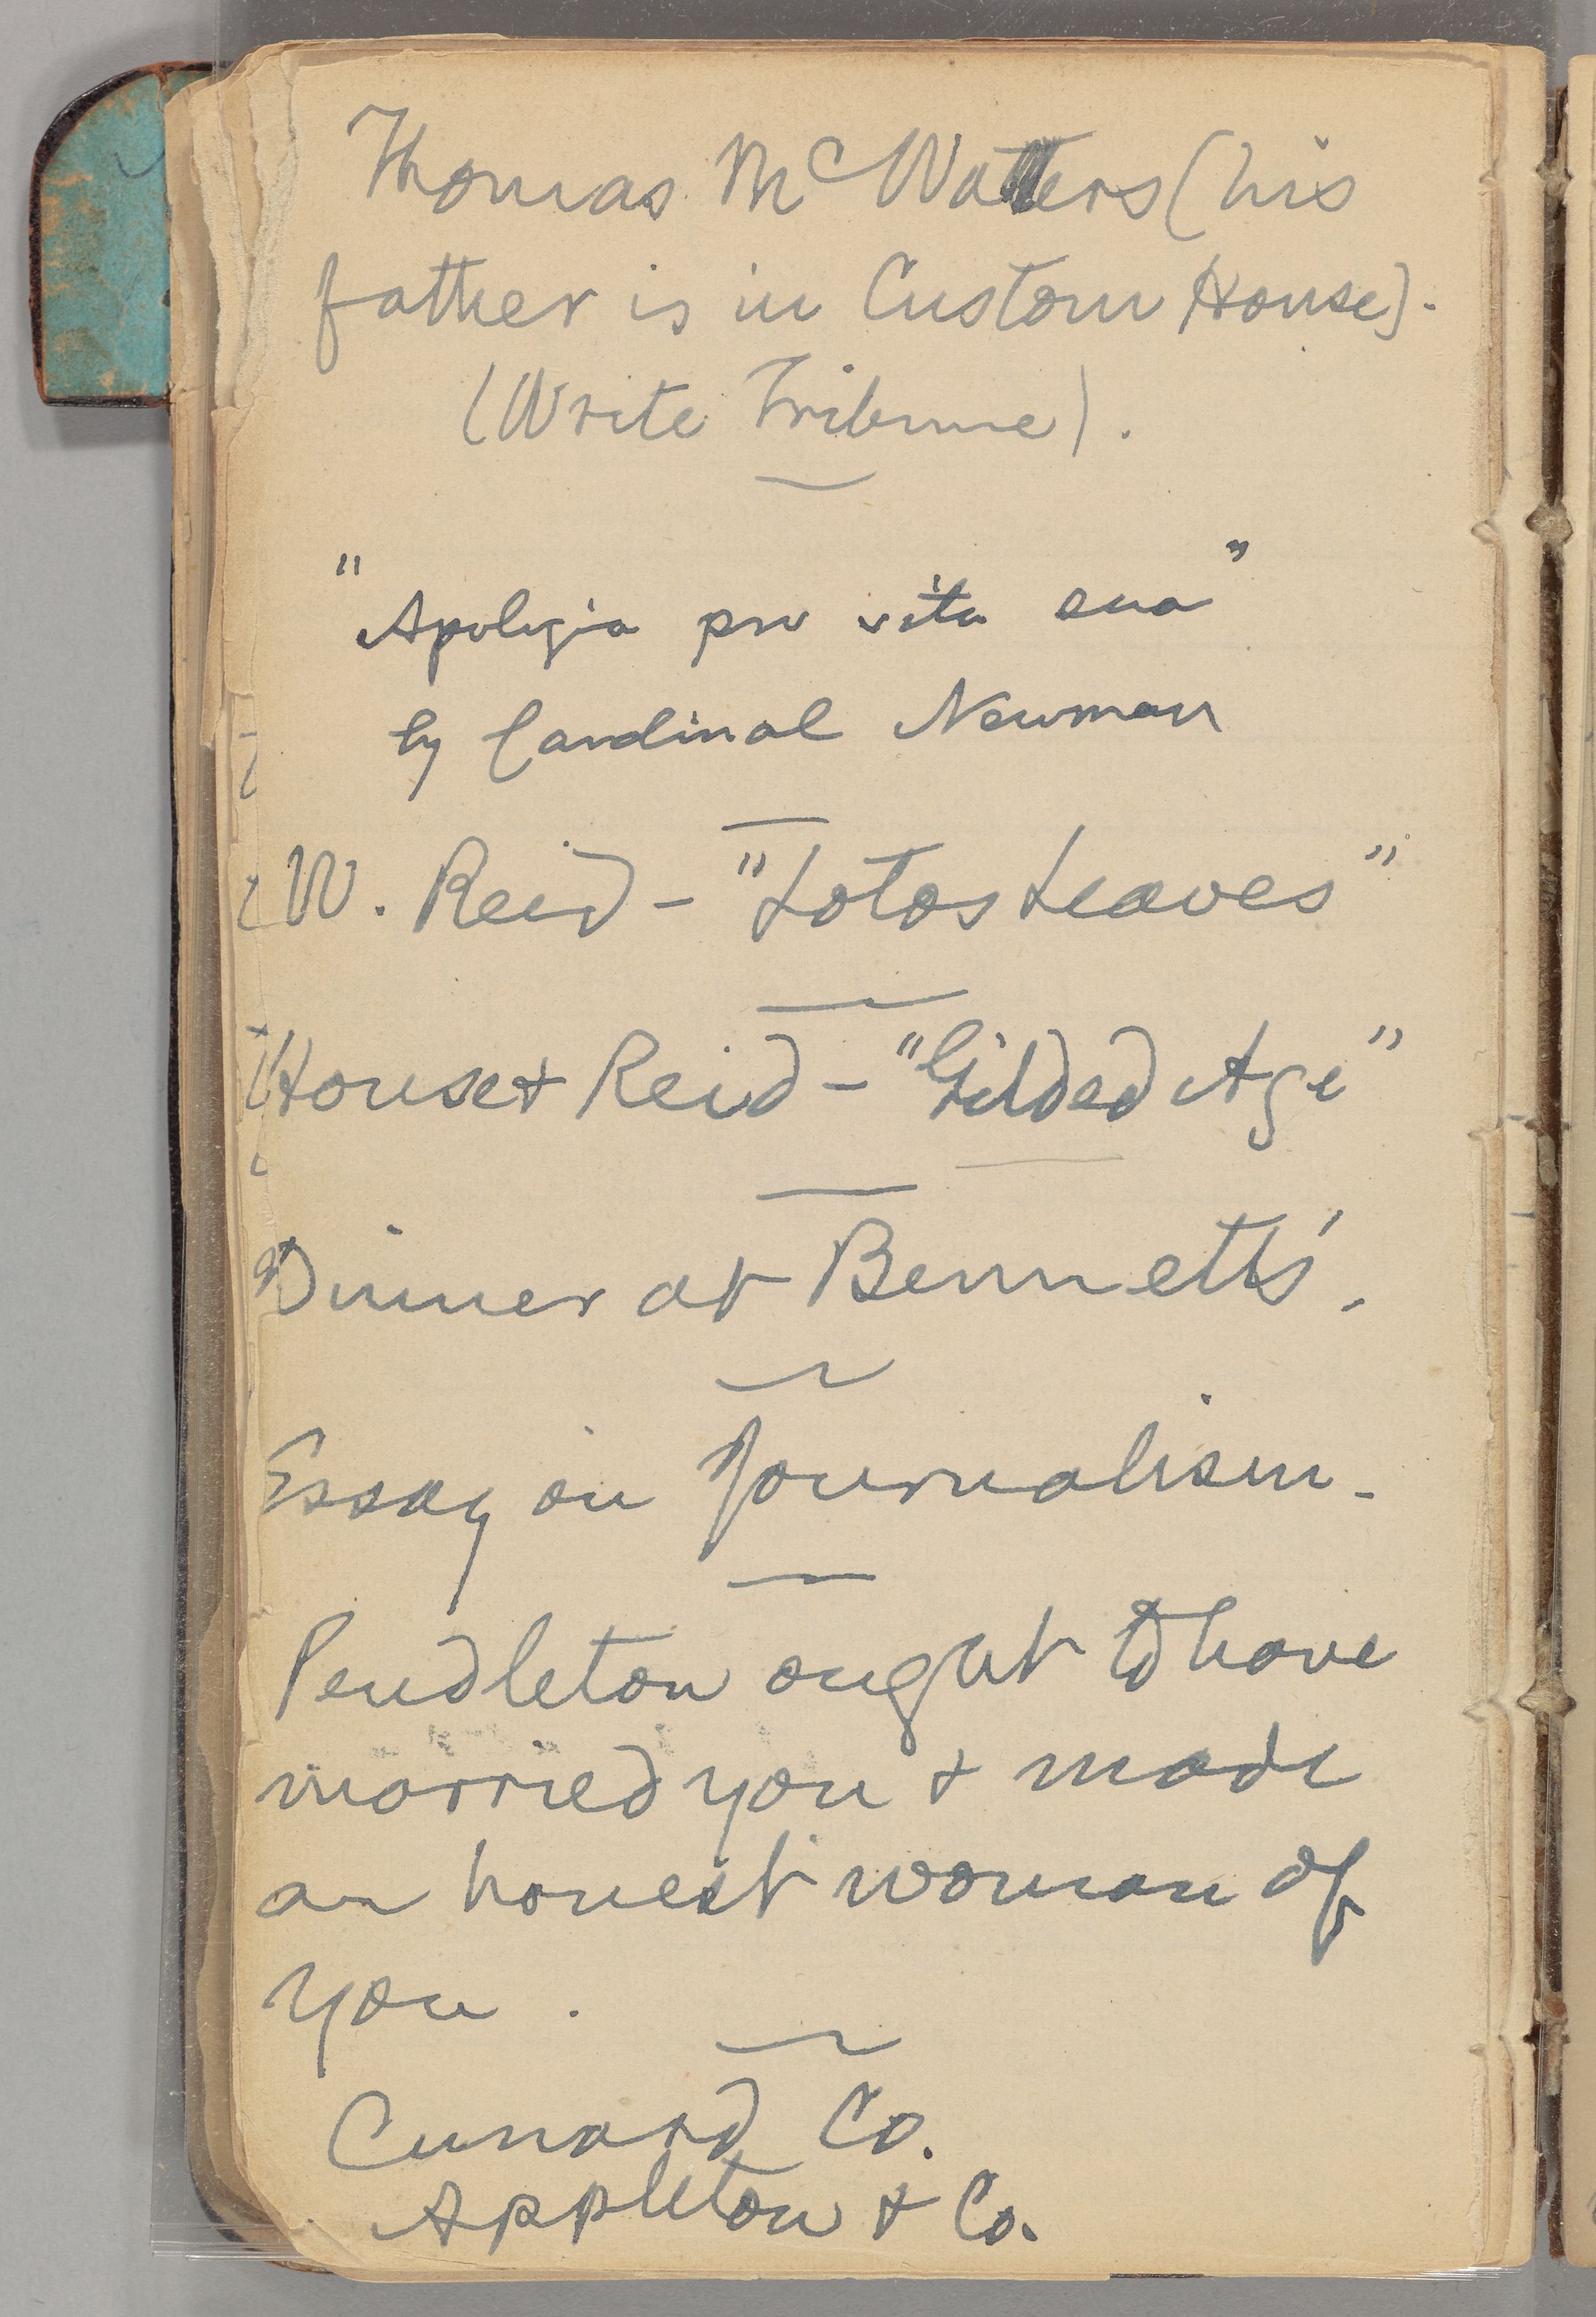 Thomas McWatters (his
father is in Custom House).
(Write Tribune).
"Apologia pro vita sua"
by Cardinal Newman
W. Reid - "Lotos Leaves"
House & Reid - "Gilded Age"
Dinner at Bennett's.
Essay on Journalism.
Pendleton ought to have
married you & made
an honest woman of
you.
Cunard Co.
Appleton & Co.